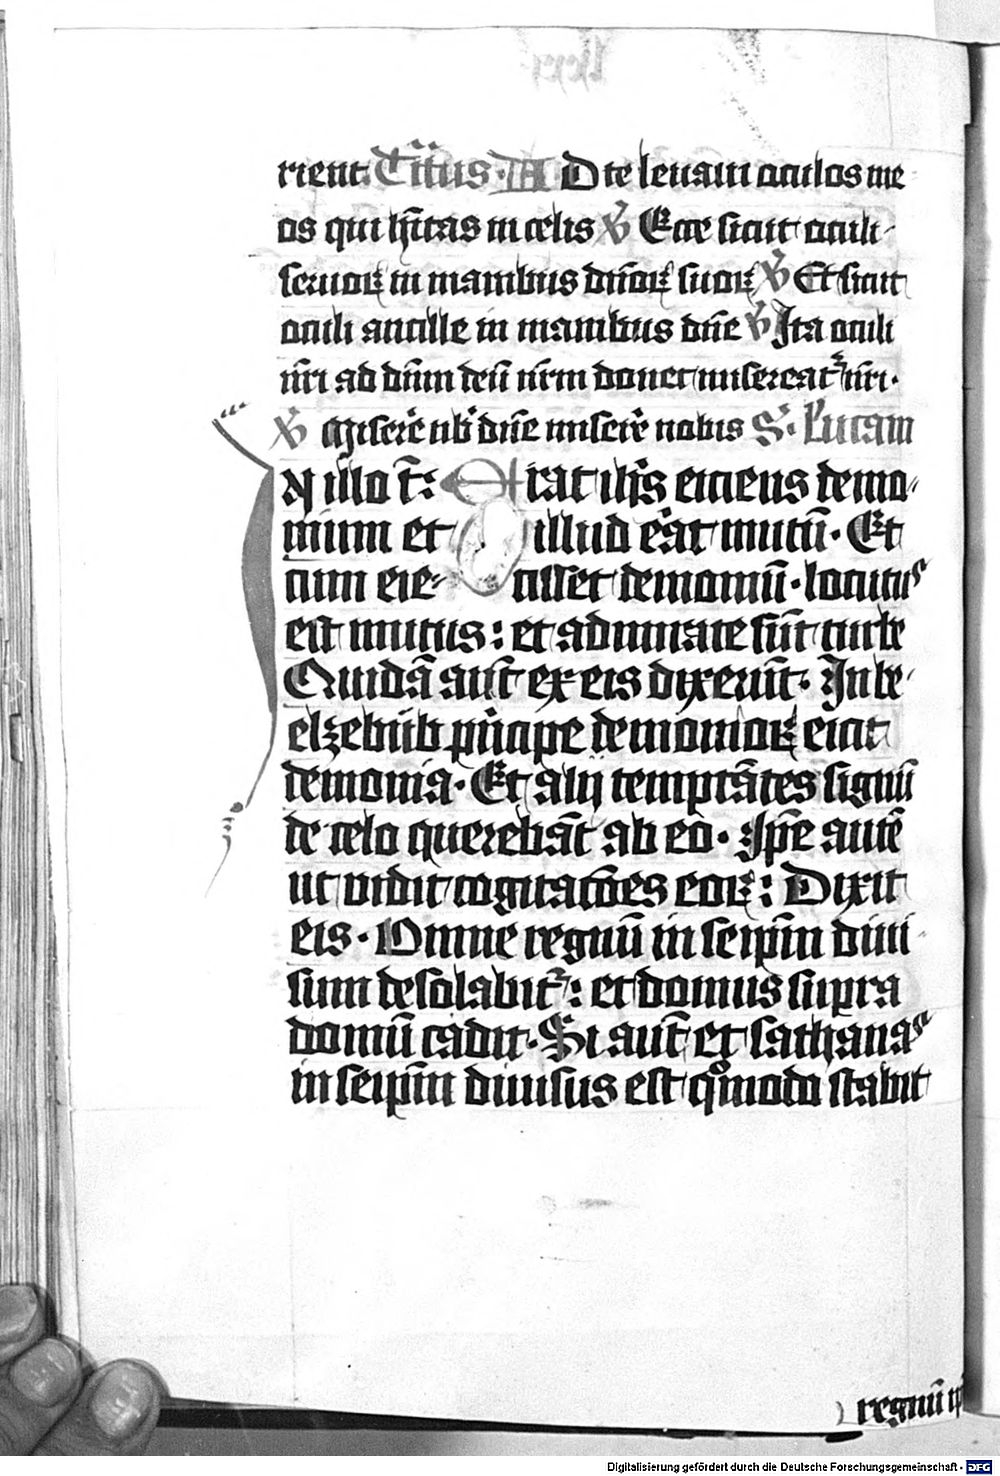 rient. Tr̃tus. AD te leuaui oculos me
os qui hĩtas in celis v̄ Ecce sicut oculi
seruoꝝ in manibus dñoꝝ suoꝝ v̄ Et sicut
oculi ancille in manibus dñe v̄ Ita oculi
nr̃i ad dñm deũ nr̃m donec misereatʳ nr̃i.
v̄ Miserẽ nb̃ dñe miserẽ nobis S. Lucam
N illo t̃: Erat ih̃s eiciens demo
nium et illud erat mutũ. Et
cum eie cisset demoniũ. locutuꝰ
est mutus: et admirate sũt turbe
Quidã aũt ex eis dixerũt. In be
elzebub prĩcipe demonioꝝ eicit
demonia. Et alij temptãtes signũ
de celo querebãt ab eo. Ip̃e autẽ
ut vidit cogitac̃oes eoꝝ: Dixit
eis. Omne regnũ in seip̃m diui
sum desolabitʳ: et domus supra
domũ cadit. Si aũt et sathanas
in seip̃m diuisus est qͦmodo stabit
regnũ ip̃
Digitalisierung gefördert durch die Deutsche Forschungsgemeinschaft - DFG